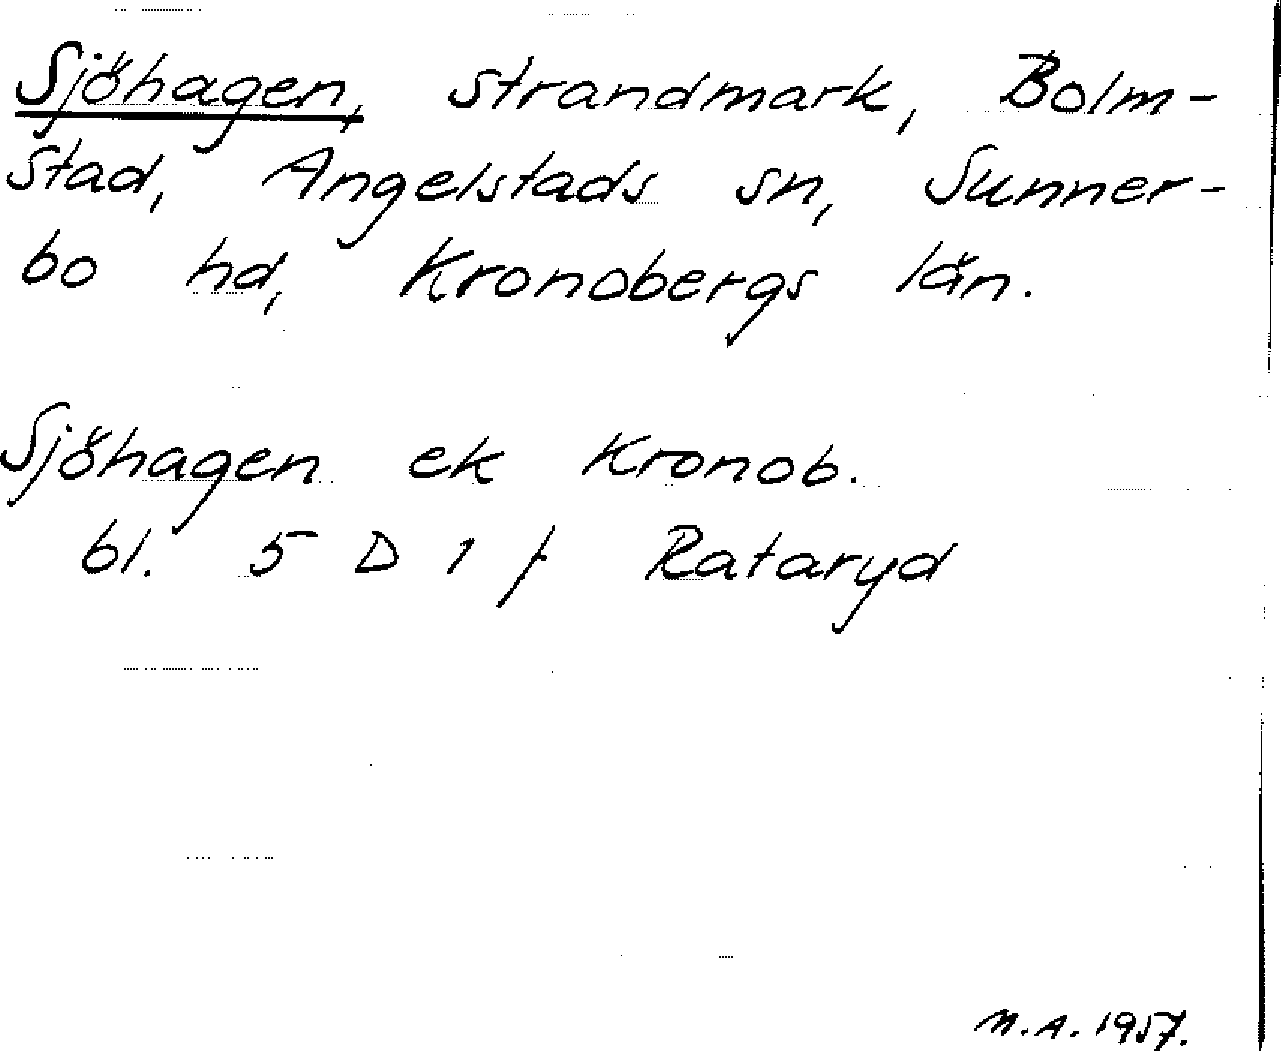 Sjöhagen, strandmark, Bolm-
stad, Angelstads sn, Sunner-
bo hd, Kronobergs län.
Sjöhagen ek Kronob.
bl. 5 D 1 f Rataryd
M.A. 1957.